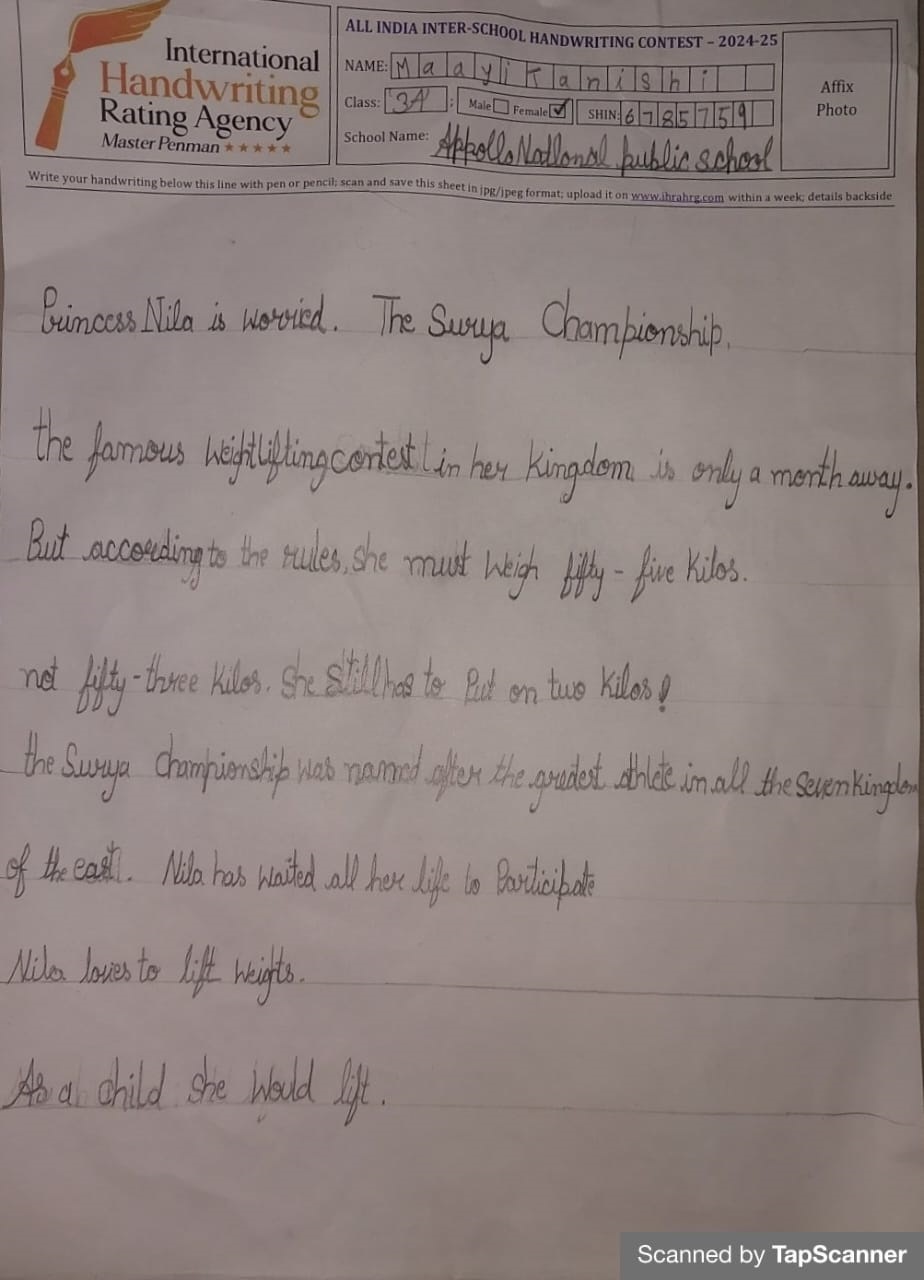 International
Handwriting
Rating Agency
Master Penman ★★★★★
ALL INDIA INTER-SCHOOL HANDWRITING CONTEST – 2024-25
NAME: Maayikanishi
Class: 3A ; Male Female ✓ SHIN: 6785759
School Name: Appollo National public school
Affix
Photo
Write your handwriting below this line with pen or pencil; scan and save this sheet in jpg/jpeg format; upload it on www.ihrahrg.com within a week; details backside
Princess Nila is worried. The Surya Championship.
the famous Weightlifting contest in her kingdom is only a month away.
But according to the rules, she must weigh fifty - five kilos.
not fifty-three kilos. She still has to Put on two kilos!
the Surya championship was named after the greatest athlete in all the seven kingdom
of the east. Nila has waited all her life to Participate
Nila loves to lift weights.
As a child she would lift.
Scanned by TapScanner